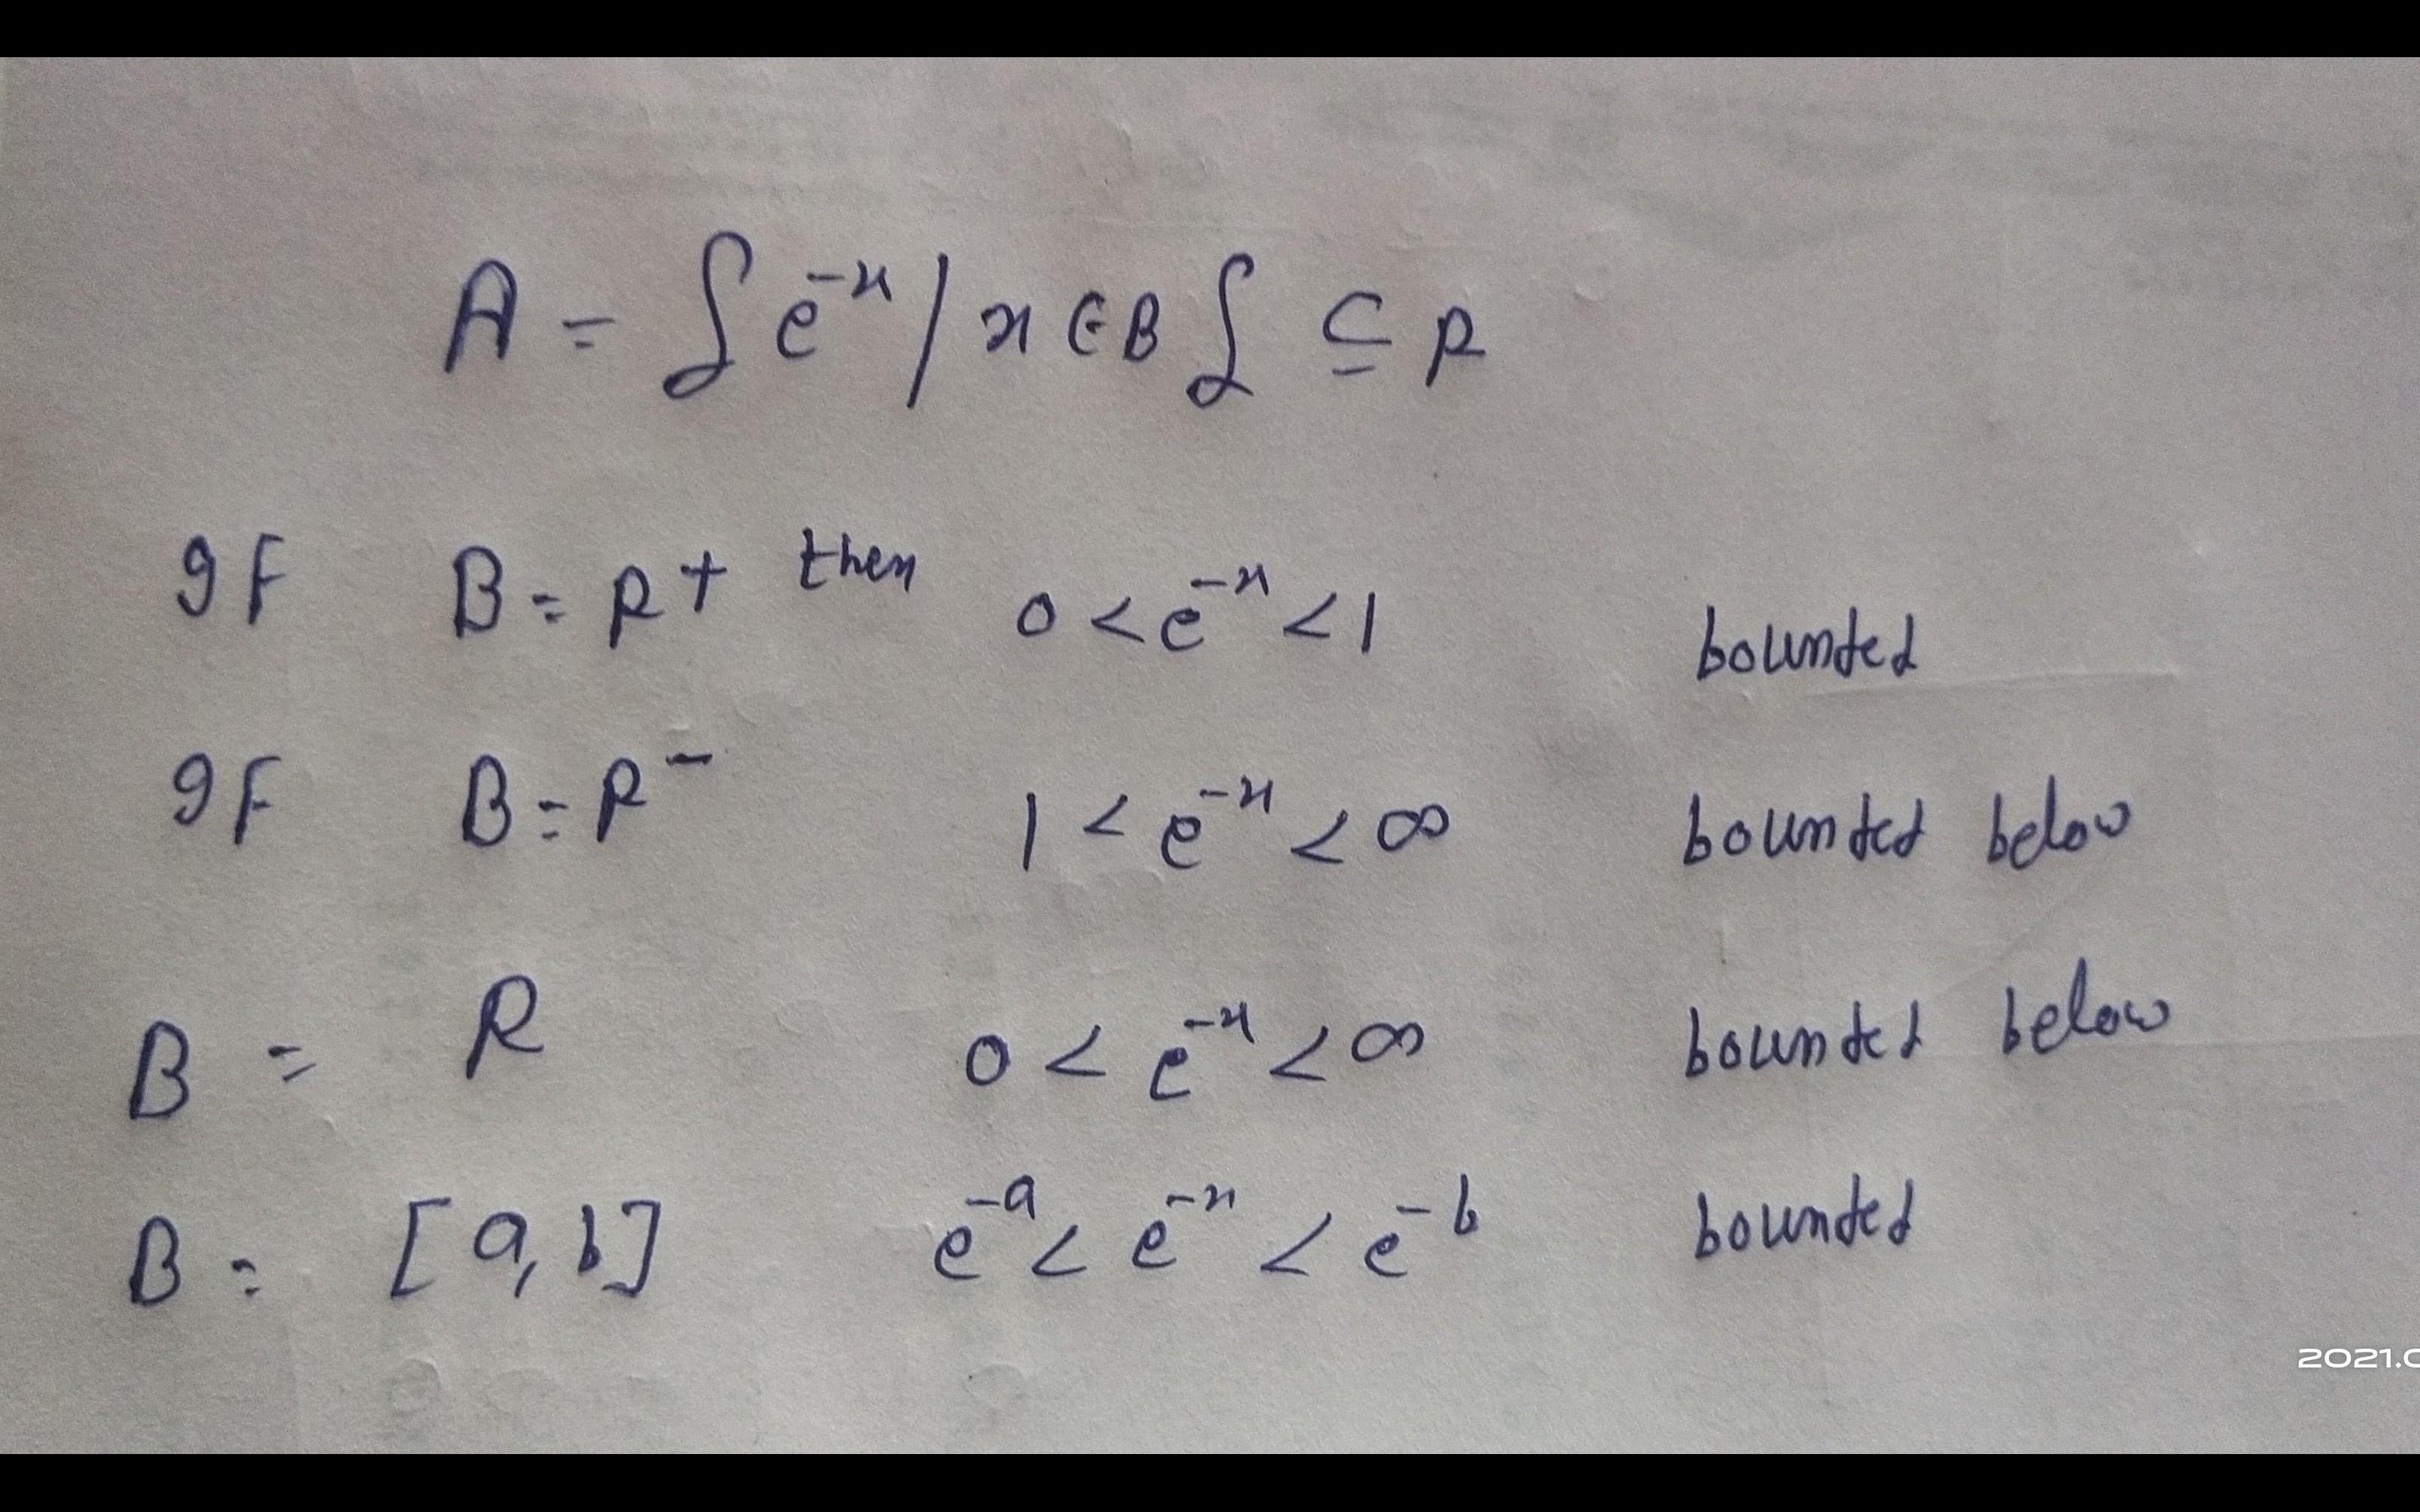 A = { e^{-x} / x ∈ B } ⊆ R
If B = R^+ then 0 < e^{-x} < 1 bounded
If B = R^- 1 < e^{-x} < ∞ bounded below
B = R 0 < e^{-x} < ∞ bounded below
B = [a, b] e^{-a} < e^{-x} < e^{-b} bounded